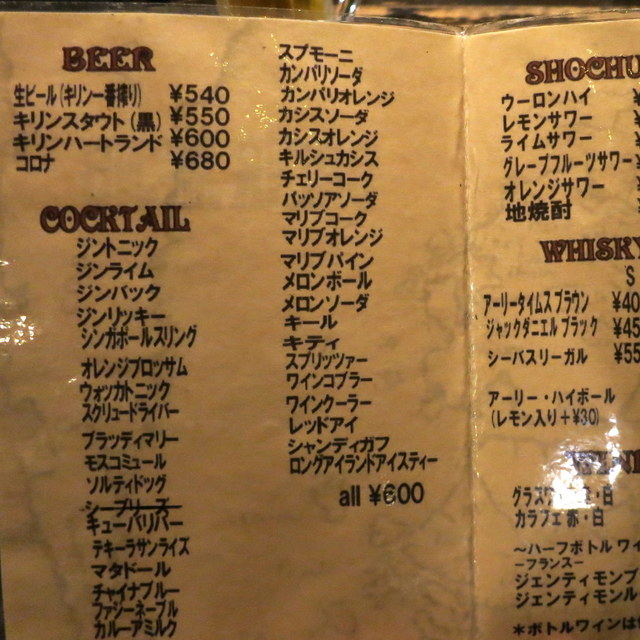 BEER
生ビール(キリン一番搾り) ¥540
キリンスタウト(黒) ¥550
キリンハートランド ¥600
コロナ ¥680
COCKTAIL
ジントニック
ジンライム
ジンバック
ジンリッキー
シンガポールスリング
オレンジブロッサム
ウォッカトニック
スクリュードライバー
ブラッディマリー
モスコミュール
ソルティドッグ
シーブリーズ
キューバリバー
テキーラサンライズ
マタドール
チャイナブルー
ファジーネーブル
カルーアミルク
スプモーニ
カンパリソーダ
カンパリオレンジ
カシスソーダ
カシスオレンジ
キルシュカシス
チェリーコーク
パッソアソーダ
マリブコーク
マリブオレンジ
マリブパイン
メロンボール
メロンソーダ
キール
キティ
スプリッツァー
ワインコブラー
ワインクーラー
レッドアイ
シャンディガフ
ロングアイランドアイスティー
all ¥600
SHOCHU
ウーロンハイ
レモンサワー
ライムサワー
グレープフルーツサワー
オレンジサワー
地焼酎
WHISKY
S
アーリータイムスブラウン ¥40
ジャックダニエルブラック ¥45
シーバスリーガル ¥55
アーリー・ハイボール
(レモン入り+¥30)
カラフェ赤・白
~ハーフボトル ワイ
ーフランスー
ジェンティモンブ
ジェンティモンル
*ボトルワインは